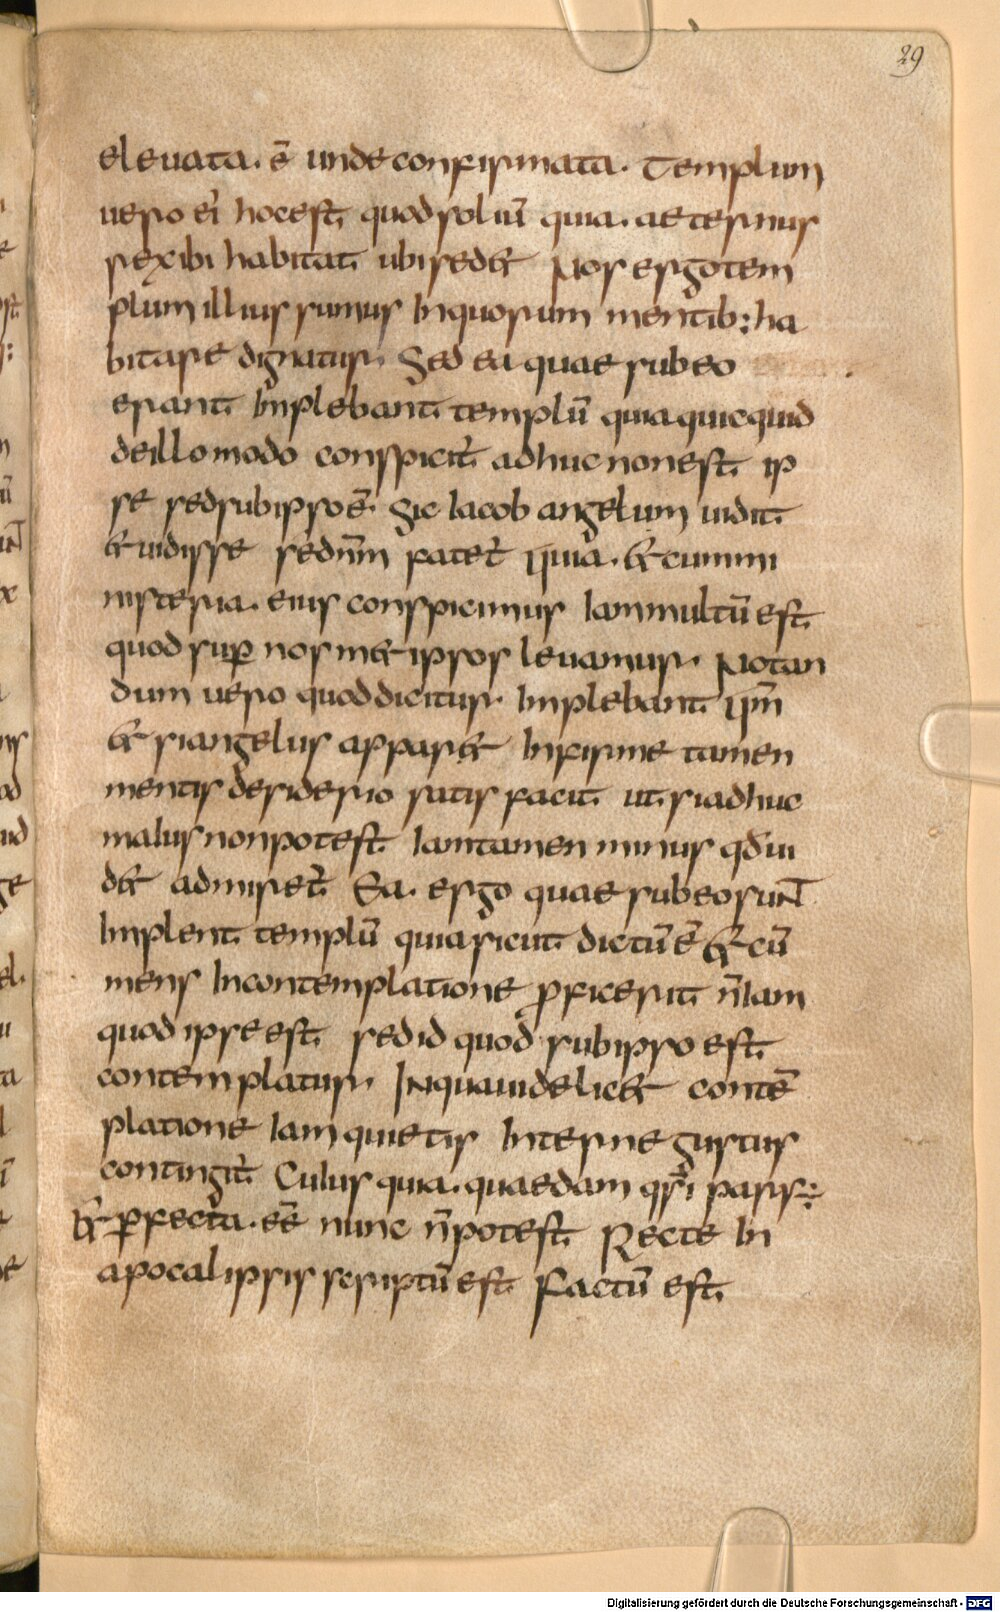 29
eleuata. ē unde confirmata. Templum
uero ei hoc est, quod soliū quia. aeternus
rex ibi habitat, ubi sedet Nos ergo tem
plum illius sumus Inquorum mentib: ha
bitare dignatur, Sed ea quae sub eo
erant, Implebant, templū quia quicquid
de illo modo conspicit̉ adhuc non est, ip
se sed sub ipso ē. Sic Iacob angelum uidit,
& uidisse se dn̄m fatet̉ quia. & cum mi
nisteria. eius conspicimus Iam multū est,
quod sup nosmet ipsos leuamur, Notan
dum uero quod dicitur, Implebant, qm̄
& si angelus apparet Infirme tamen
mentis desiderio satis facit, ut, si adhuc
maius non potest, Iam tamen minus qđ ui
det admiret̉, Ea. ergo quae sub eo sunt
Implent, templū quia sicut, dictū ē & cū
mens Incontemplatione proficerit, n̄ Iam
quod ipse est, sed id quod sub ipso est,
contemplatur, Inqua uidelicet contē
platione Iam quietis Interne gustus
contingit, Cuius quia. quaedam qsi pars:,
& perfecta. eē nunc n̄ potest, Recte In
apocalipsis scriptū est, Factū est,
el.
Digitalisierung gefördert durch die Deutsche Forschungsgemeinschaft - DFG